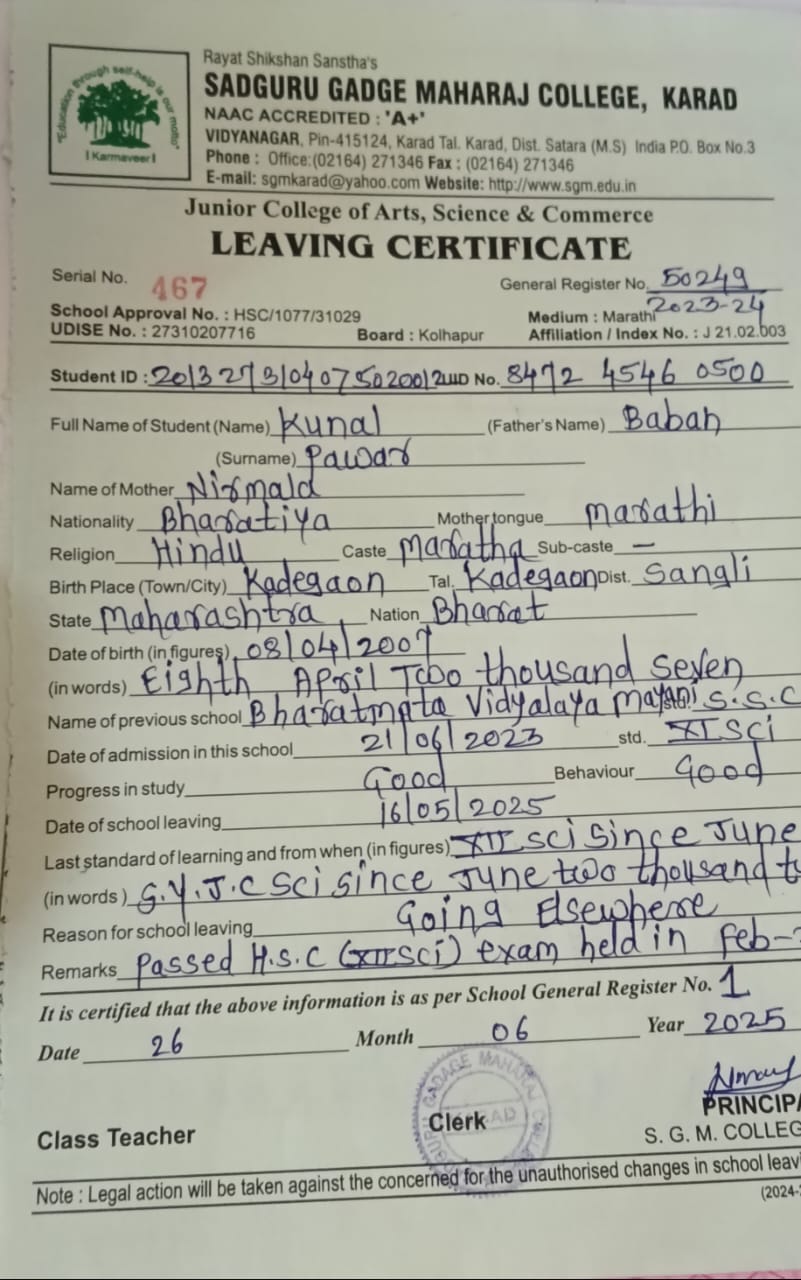 Rayat Shikshan Sanstha's
SADGURU GADGE MAHARAJ COLLEGE, KARAD
NAAC ACCREDITED : 'A+'
VIDYANAGAR, Pin-415124, Karad Tal. Karad, Dist. Satara (M.S) India P.O. Box No.3
Phone : Office:(02164) 271346 Fax : (02164) 271346
E-mail: sgmkarad@yahoo.com Website: http://www.sgm.edu.in
"Education through self-help is our motto"
Karmaveer
Junior College of Arts, Science & Commerce
LEAVING CERTIFICATE
Serial No. 467 General Register No. 50249
2023-24
School Approval No. : HSC/1077/31029 Medium : Marathi
UDISE No. : 27310207716 Board : Kolhapur Affiliation / Index No. : J 21.02.003
Student ID : UID No. 8472 4546 0500
Full Name of Student (Name) Kunal (Father's Name) Baban
(Surname) Pawar
Name of Mother Nirmala
Nationality Bharatiya Mother tongue marathi
Religion Hindu Caste Maratha Sub-caste —
Birth Place (Town/City) Kadegaon Tal. Kadegaon Dist. Sangli
State Maharashtra Nation Bharat
Date of birth (in figures) 08/04/2007
(in words) Eighth April Two thousand seven
Name of previous school Bharatmata Vidyalaya Mayani S.S.C
Date of admission in this school 21/06/2023 std. XI Sci
Progress in study Good Behaviour Good
Date of school leaving 16/05/2025
Last standard of learning and from when (in figures) XII sci since June
(in words) S.Y.J.C Sci since June two thousand
Reason for school leaving Going Elsewhere
Remarks Passed H.S.C (XII Sci) exam held in Feb-
It is certified that the above information is as per School General Register No. 1
Date 26 Month 06 Year 2025
Class Teacher Clerk PRINCIPA
S. G. M. COLLEG
Note : Legal action will be taken against the concerned for the unauthorised changes in school leavi
(2024-